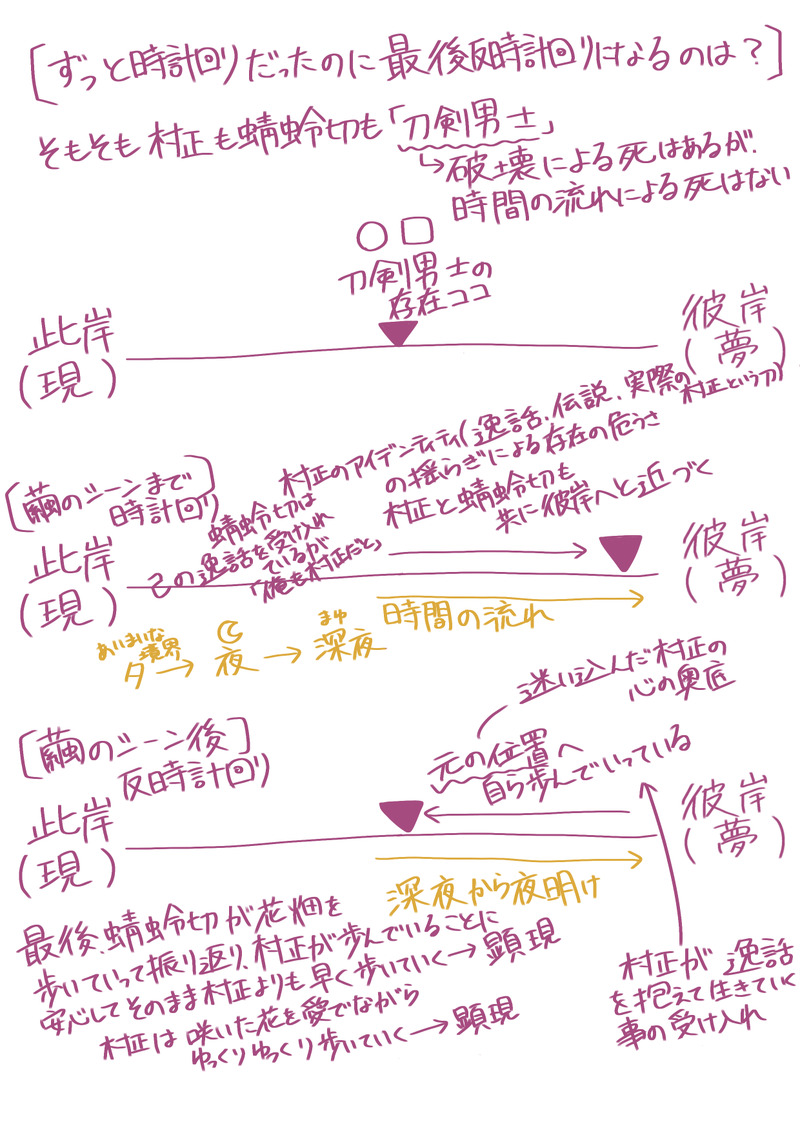 [ずっと時計回りだったのに最後反時計回りになるのは？]
そもそも村正も蜻蛉切も「刀剣男士」
↳破壊による死はあるが、
時間の流れによる死はない
○□
刀剣男士の
存在ココ
此岸
(現)
彼岸
(夢)
[繭のシーンまで]
時計回り
村正のアイデンティティ(逸話、伝説、実際の
村正という刀)
の揺らぎによる存在の危うさ
村正と蜻蛉切も
共に彼岸へと近づく
蜻蛉切は
己の逸話を受け入れ
ているが
「俺も村正だと」
此岸
(現)
彼岸
(夢)
時間の流れ
あいまいな
境界
夕→夜→深夜
まゆ
迷い込んだ村正の
心の奥底
[繭のシーン後]
反時計回り
元の位置へ
自ら歩んでいっている
此岸
(現)
彼岸
(夢)
深夜から夜明け
最後、蜻蛉切が花畑を
歩いていって振り返り、村正が歩んでいることに
安心してそのまま村正よりも早く歩いていく→顕現
村正は咲いた花を愛でながら
ゆっくりゆっくり歩いていく→顕現
村正が逸話
を抱えて生きていく
事の受け入れ